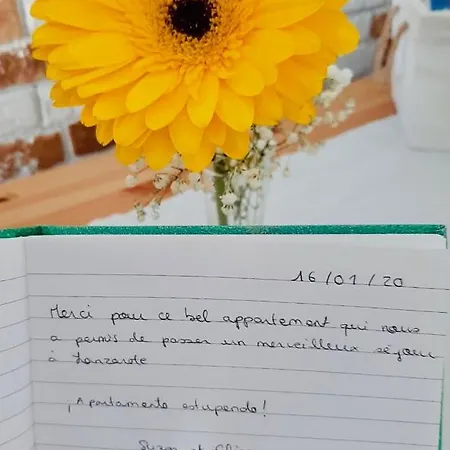 16/01/20
Merci pour ce bel appartement qui nous
a permis de passer un merveilleux séjour
à Lanzarote
¡Apartamento estupendo!
et